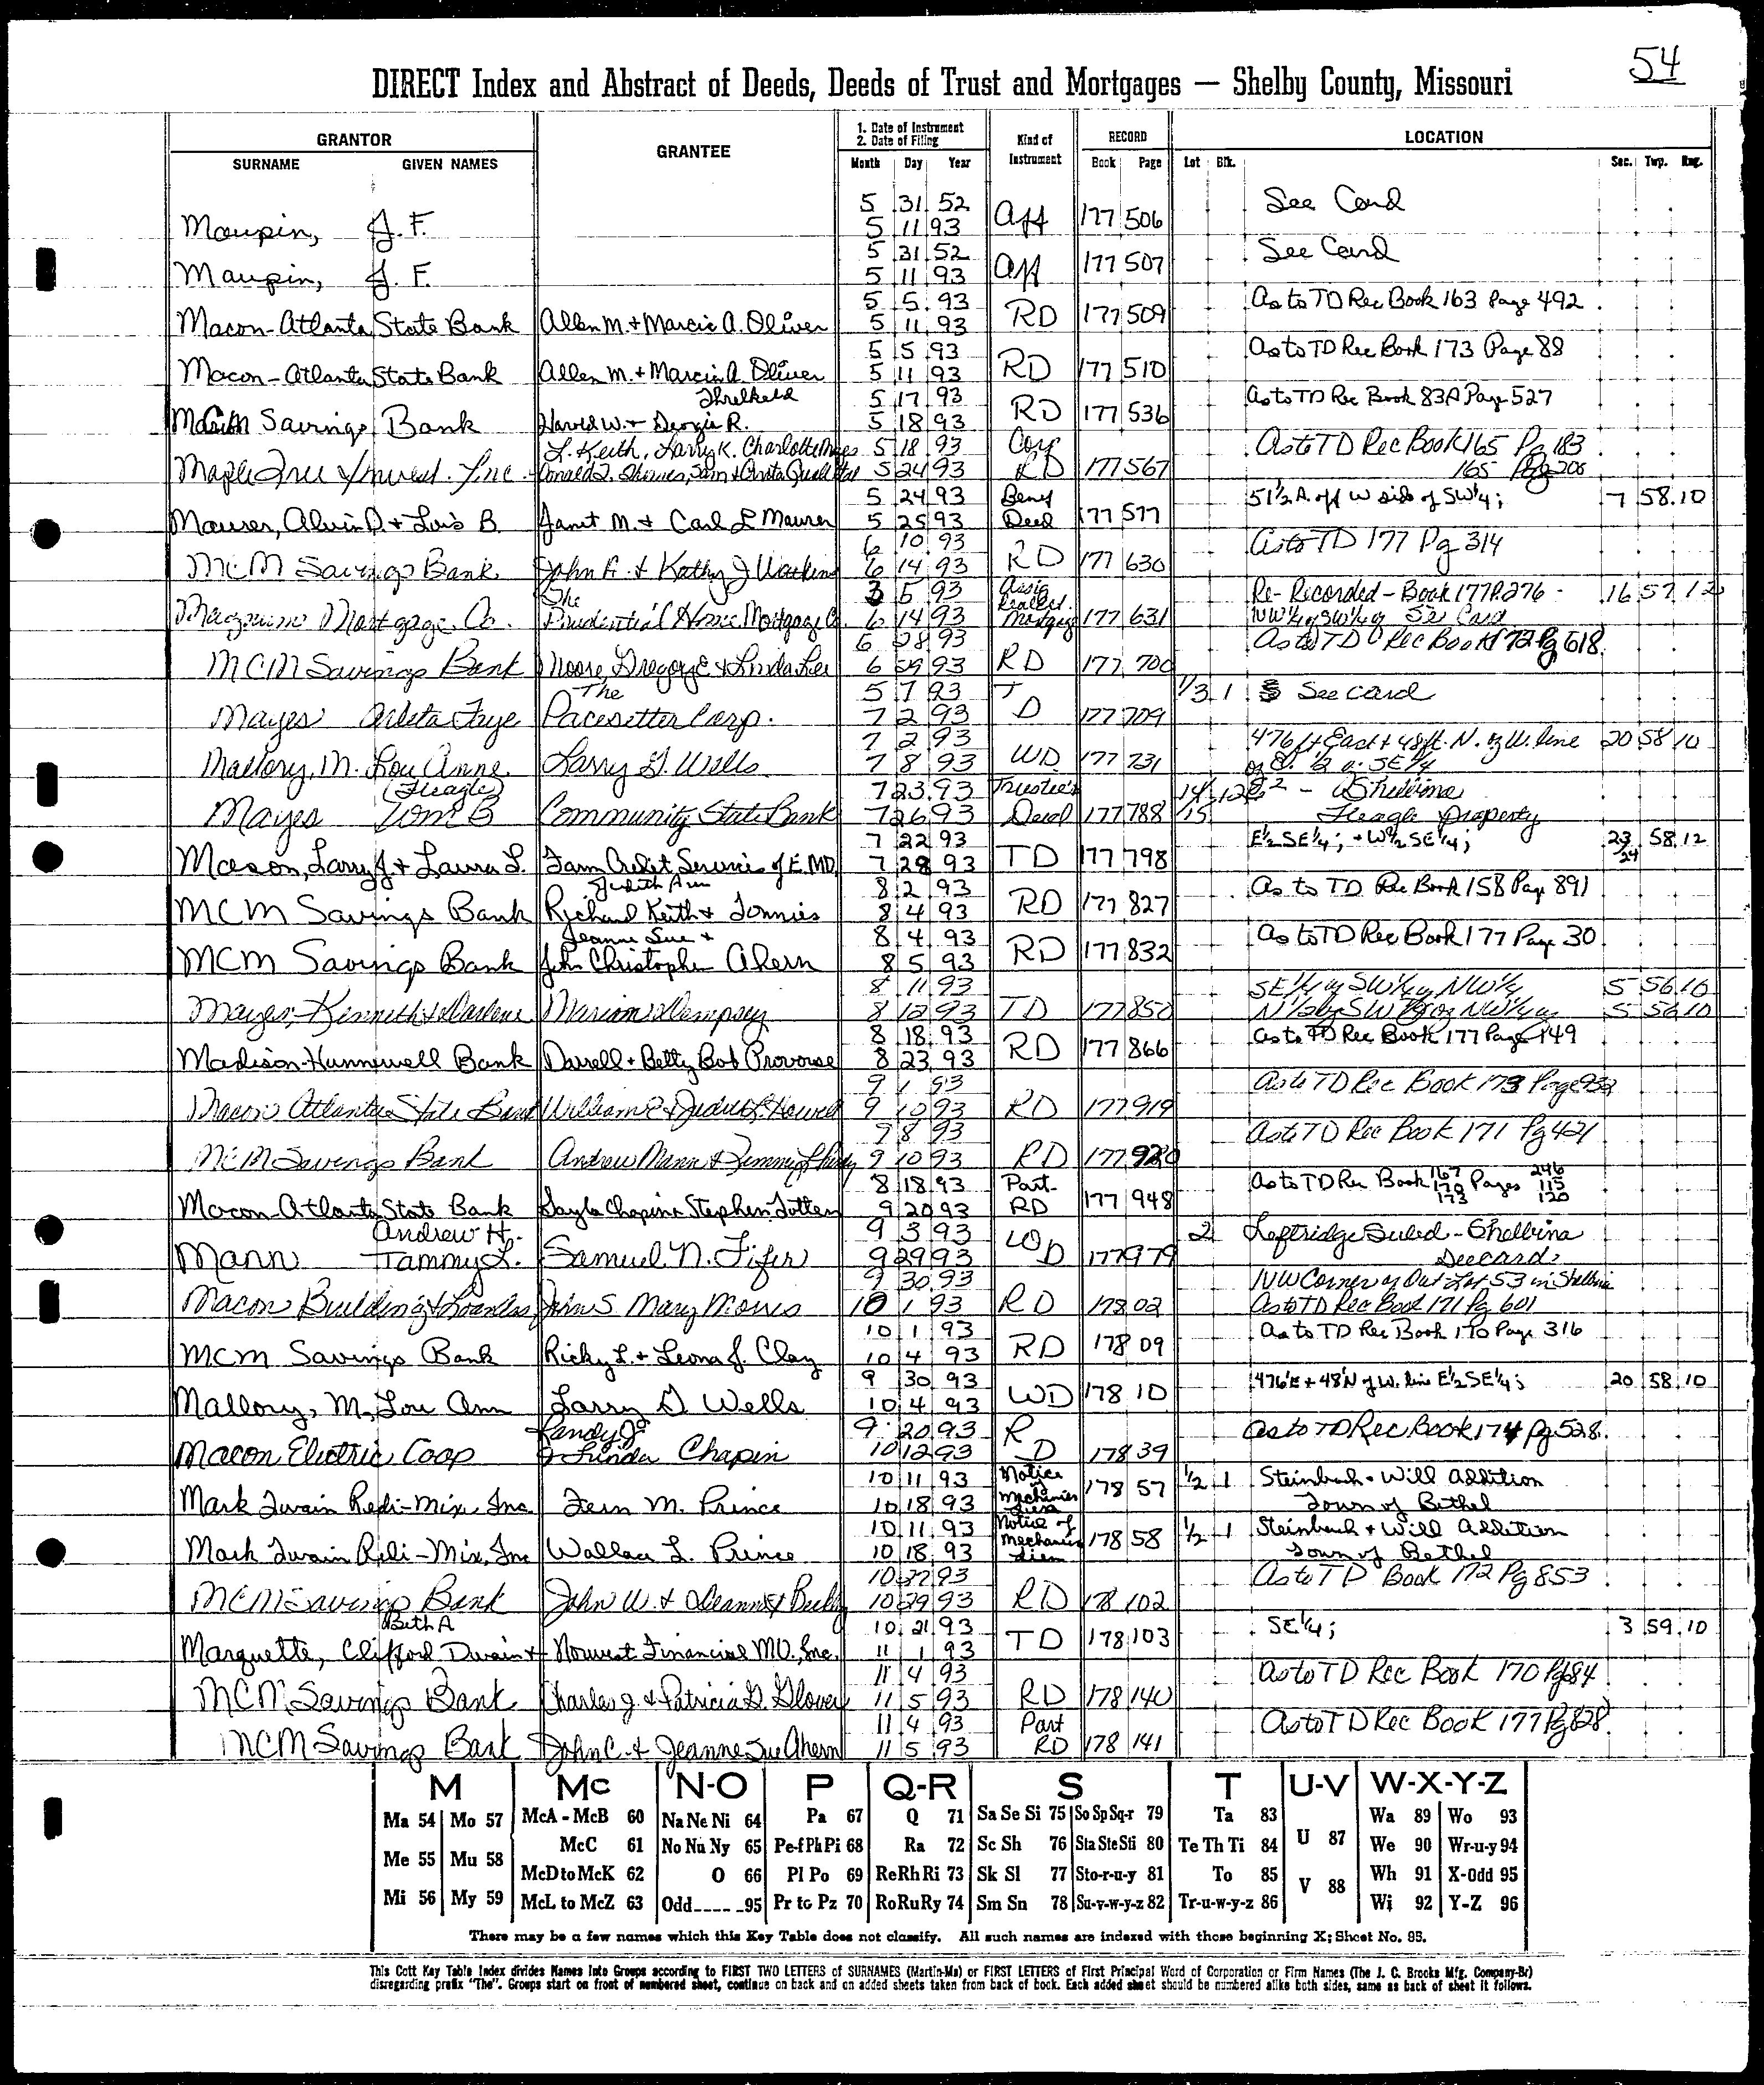 54
DIRECT Index and Abstract of Deeds, Deeds of Trust and Mortgages — Shelby County, Missouri
GRANTOR GRANTEE 1. Date of Instrument 2. Date of Filing Kind of Instrument RECORD LOCATION
SURNAME GIVEN NAMES Month Day Year Book Page Lot Blk. Sec. Twp. Rng.
5 31 52 See Card
Maupin, J. F. 5 11 93 Aff 177 506
5 31 52 See Card
Maupin, J. F. 5 11 93 Aff 177 507
5 5 93 As to TD Rec Book 163 Page 492
Macon-Atlanta State Bank Allen M. + Marcia A. Oliver 5 11 93 RD 177 509
5 5 93 As to TD Rec Book 173 Page 88
Macon-Atlanta State Bank Allen M. + Marcia A. Oliver 5 11 93 RD 177 510
Threlkeld 5 17 93 As to TD Rec Book 83A Page 527
Savings Bank Harold W. + Georgia R. 5 18 93 RD 177 536
L. Keith, Larry K. Charlotte Mayes 5 18 93 Corp As to TD Rec Book 165 Pg 183
Maple Tree Invest. Inc. 5 24 93 RD 177 567 165 Pg 208
5 24 93 Benef 51½ A. off W side of SW¼; 7 58 10
Maurer, Alvin D. + Lois B. Janet M. + Carl L Maurer 5 25 93 Deed 177 577
6 10 93 As to TD 177 Pg 314
MCM Savings Bank John R. + Kathy J Watkins 6 14 93 RD 177 630
The 3 5 93 Assig Re-Recorded - Book 177 P. 276 - 16 57 12
Mortgage Co. Prudential Home Mortgage Co. 6 14 93 177 631
6 28 93 As to TD Rec Book 172 Pg 618
MCM Savings Bank Moore, Gregory E + Linda Lee 6 29 93 RD 177 700
The 5 7 93 T 1/3 1 See card
Mayes Arleta Faye Pacesetter Corp. 7 2 93 D 177 709
7 2 93 476 ft East + 48 ft. N. of W. line 20 58 10
Mallory, M. Lou Anne Larry D. Wells 7 8 93 WD 177 731 of E. ½ of SE¼
(Feagle) 7 23 93 Trustee's 14 Shelbina
Mayes Wm B Community State Bank 7 26 93 Deed 177 788 15 Feagle Property
7 22 93 E½ SE¼; + W½ SE¼; 23 58 12
Mason, Larry J + Laura L. Farm Credit Services of E. MO 7 28 93 TD 177 798 24
Judith Ann 8 2 93 As to TD Rec Book 158 Page 891
MCM Savings Bank Richard Keith + Tonnies 8 4 93 RD 177 827
Jeanne Sue + 8 4 93 As to TD Rec Book 177 Page 30
MCM Savings Bank John Christopher Ahern 8 5 93 RD 177 832
8 11 93 SE¼ of SW¼ of NW¼ 5 56 10
Mayes, Kenneth + Darlene Marion Dempsey 8 12 93 TD 177 850 5 56 10
8 18 93 As to TD Rec Book 177 Page 149
Madison-Hunnewell Bank Darrell + Betty Bob Provorse 8 23 93 RD 177 866
9 1 93 As to TD Rec Book 173 Page
Macon Atlanta State Bank William 9 10 93 RD 177 919
9 8 93 As to TD Rec Book 171 Pg 421
MCM Savings Bank Andrew Mann 9 10 93 RD 177 920
8 18 93 Part- As to TD Rec Book 167 170 173 Pages 246 115 120
Macon-Atlanta State Bank Gayla Chapin + Stephen Totten 9 20 93 RD 177 948
Andrew H. 9 3 93 2 Leftridge Subd - Shelbina
Mann Tammy L. Samuel N. Fifer 9 29 93 WD 177 979 See card
9 30 93 NW Corner of Out Lot 53 in Shelbina
Macon Building + Loan John S Mary Morris 10 1 93 RD 178 02 As to TD Rec Book 171 Pg 601
10 1 93 As to TD Rec Book 170 Page 316
MCM Savings Bank Ricky L. + Leona J. Clay 10 4 93 RD 178 09
9 30 93 476' E + 48' N of W. line E½ SE¼; 20 58 10
Mallory, M. Lou Ann Larry D Wells 10 4 93 WD 178 10
Randy J. 9 20 93 R As to TD Rec Book 174 Pg 528
Macon Electric Coop + Linda Chapin 10 12 93 D 178 39
10 11 93 Notice ½ 1 Steinbach + Will Addition
Mark Twain Redi-Mix, Inc. Fern M. Prince 10 18 93 Mechanics Lien 178 57 Town of Bethel
10 11 93 Notice of ½ 1 Steinbach + Will Addition
Mark Twain Redi-Mix, Inc Wallace L. Prince 10 18 93 Mechanics Lien 178 58 Town of Bethel
10 27 93 As to TD Book 172 Pg 853
MCM Savings Bank John W. + Deanna 10 29 93 RD 178 102
Beth A 10 21 93 SE¼; 3 59 10
Marquette, Clifford Dwain + Norwest Financial MO., Inc. 11 1 93 TD 178 103
11 4 93 As to TD Rec Book 170 Pg 84
MCM Savings Bank Charles J. + Patricia G. Glover 11 5 93 RD 178 140
11 4 93 Part As to TD Rec Book 177 Pg 828
MCM Savings Bank John C. + Jeanne Sue Ahern 11 5 93 RD 178 141
M Mc N-O P Q-R S T U-V W-X-Y-Z
Ma 54 Mo 57 McA - McB 60 Na Ne Ni 64 Pa 67 Q 71 Sa Se Si 75 So Sp Sq-r 79 Ta 83 U 87 Wa 89 Wo 93
McC 61 No Nu Ny 65 Pe-f Ph Pi 68 Ra 72 Sc Sh 76 Sta Ste Sti 80 Te Th Ti 84 We 90 Wr-u-y 94
Me 55 Mu 58 McD to McK 62 O 66 Pl Po 69 Re Rh Ri 73 Sk Sl 77 Sto-r-u-y 81 To 85 V 88 Wh 91 X-Odd 95
Mi 56 My 59 McL to McZ 63 Odd_ _ _ _ _95 Pr to Pz 70 Ro Ru Ry 74 Sm Sn 78 Su-v-w-y-z 82 Tr-u-w-y-z 86 Wi 92 Y-Z 96
There may be a few names which this Key Table does not classify. All such names are indexed with those beginning X; Sheet No. 95.
This Cott Key Table Index divides Names Into Groups according to FIRST TWO LETTERS of SURNAMES (Martin-Ma) or FIRST LETTERS of First Principal Word of Corporation or Firm Names (The J. C. Brooks Mfg. Company-Br)
disregarding prefix "The". Groups start on front of numbered sheet, continue on back and on added sheets taken from back of book. Each added sheet should be numbered alike both sides, same as back of sheet it follows.